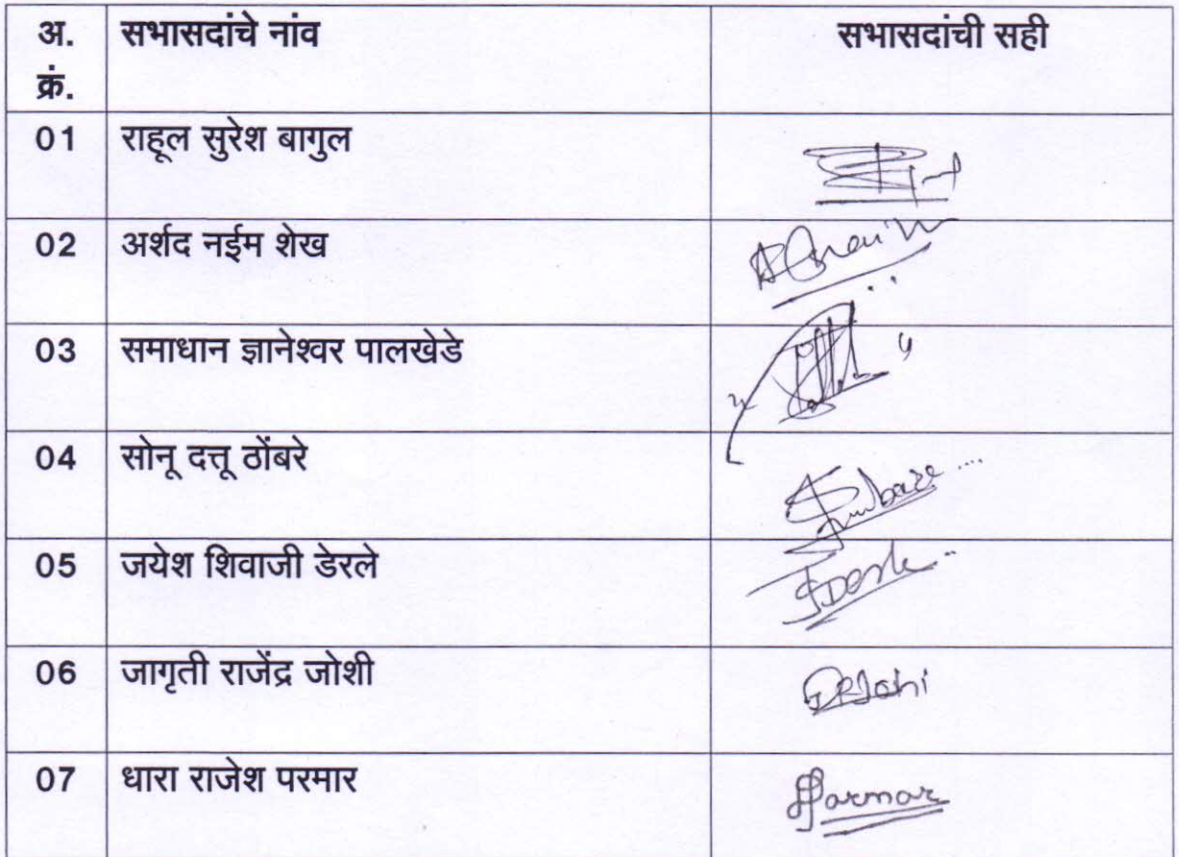 अ. सभासदांचे नांव सभासदांची सही
क्रं.
01 राहूल सुरेश बागुल
02 अर्शद नईम शेख
03 समाधान ज्ञानेश्वर पालखेडे
04 सोनू दत्तू ठोंबरे
05 जयेश शिवाजी डेरले
06 जागृती राजेंद्र जोशी
07 धारा राजेश परमार Parmar